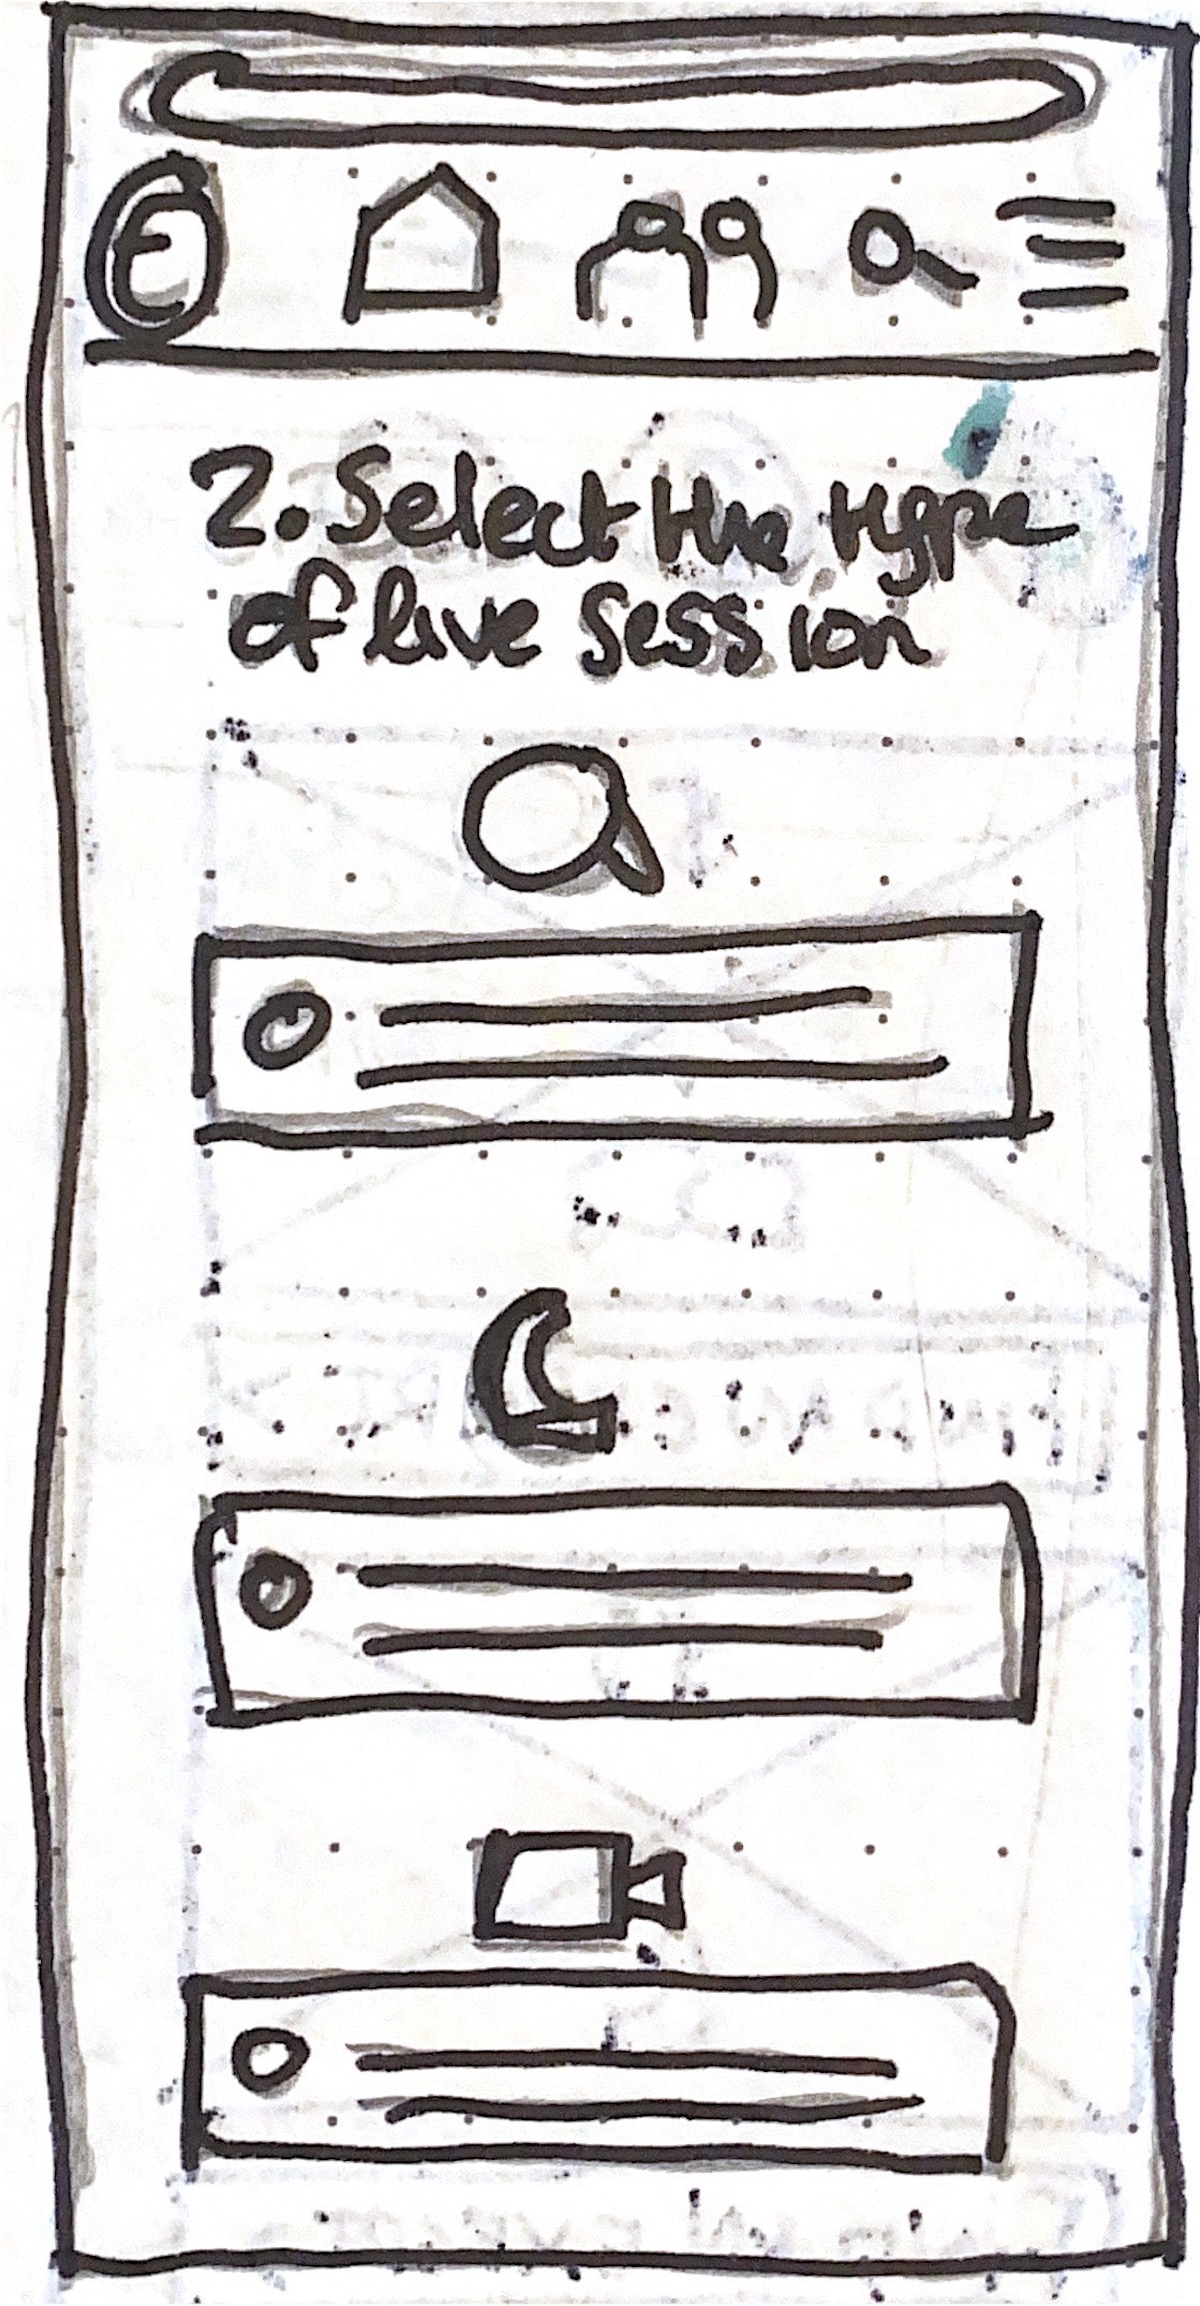 E
2. Select the type
of live session